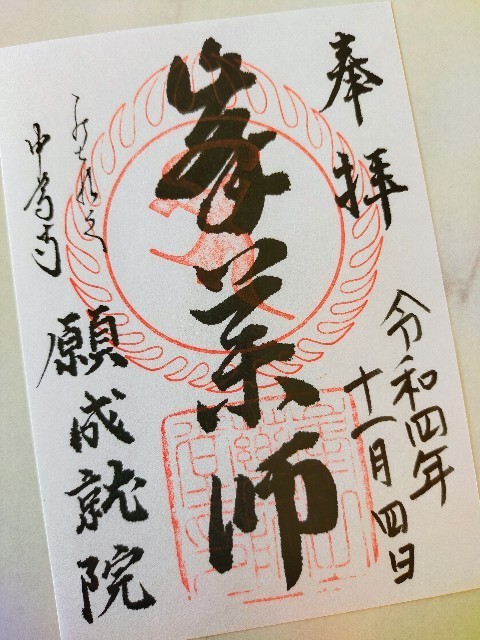 奉拝
令和四年
十一月四日
峯薬師
中尊寺
願成就院